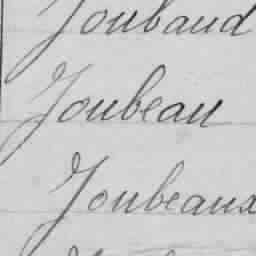 Joubaud
Joubeau
Joubeaux